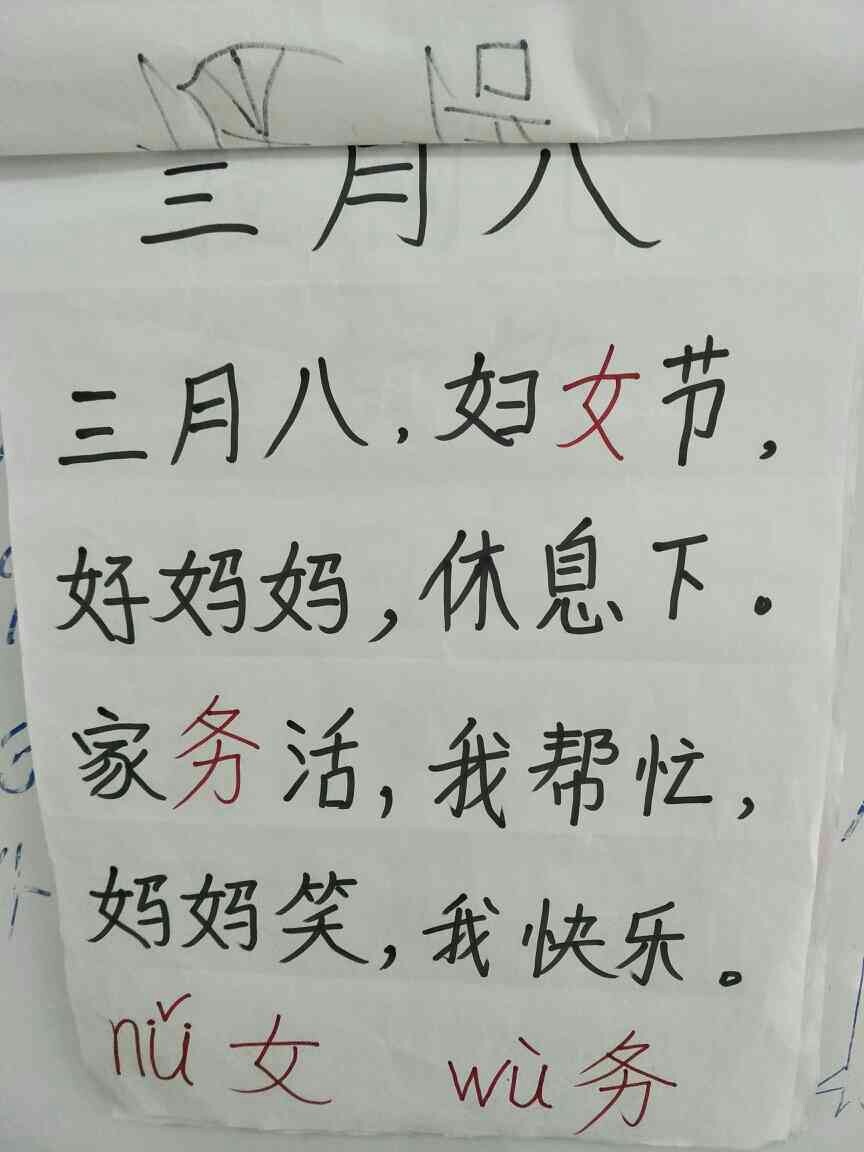 三月八
三月八，妇女节，
好妈妈，休息下。
家务活，我帮忙，
妈妈笑，我快乐。
nǚ 女 wù 务